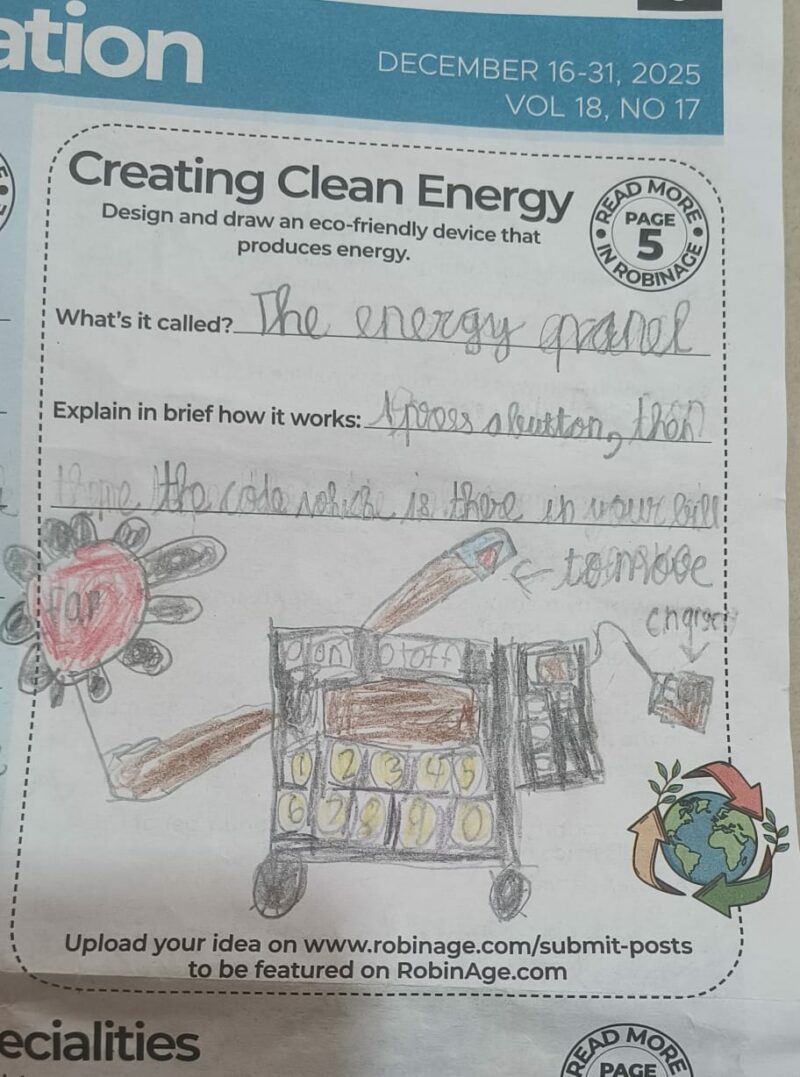 ation
DECEMBER 16-31, 2025
VOL 18, NO 17
Creating Clean Energy
Design and draw an eco-friendly device that
produces energy.
READ MORE
PAGE
5
IN ROBINAGE
What's it called? The energy
Explain in brief how it works: press a button, then
the code is there in your bill
to move
fan
on off
1 2 3 4 5
6 7 8 9 0
Upload your idea on www.robinage.com/submit-posts
to be featured on RobinAge.com
ecialities
READ MORE
PAGE